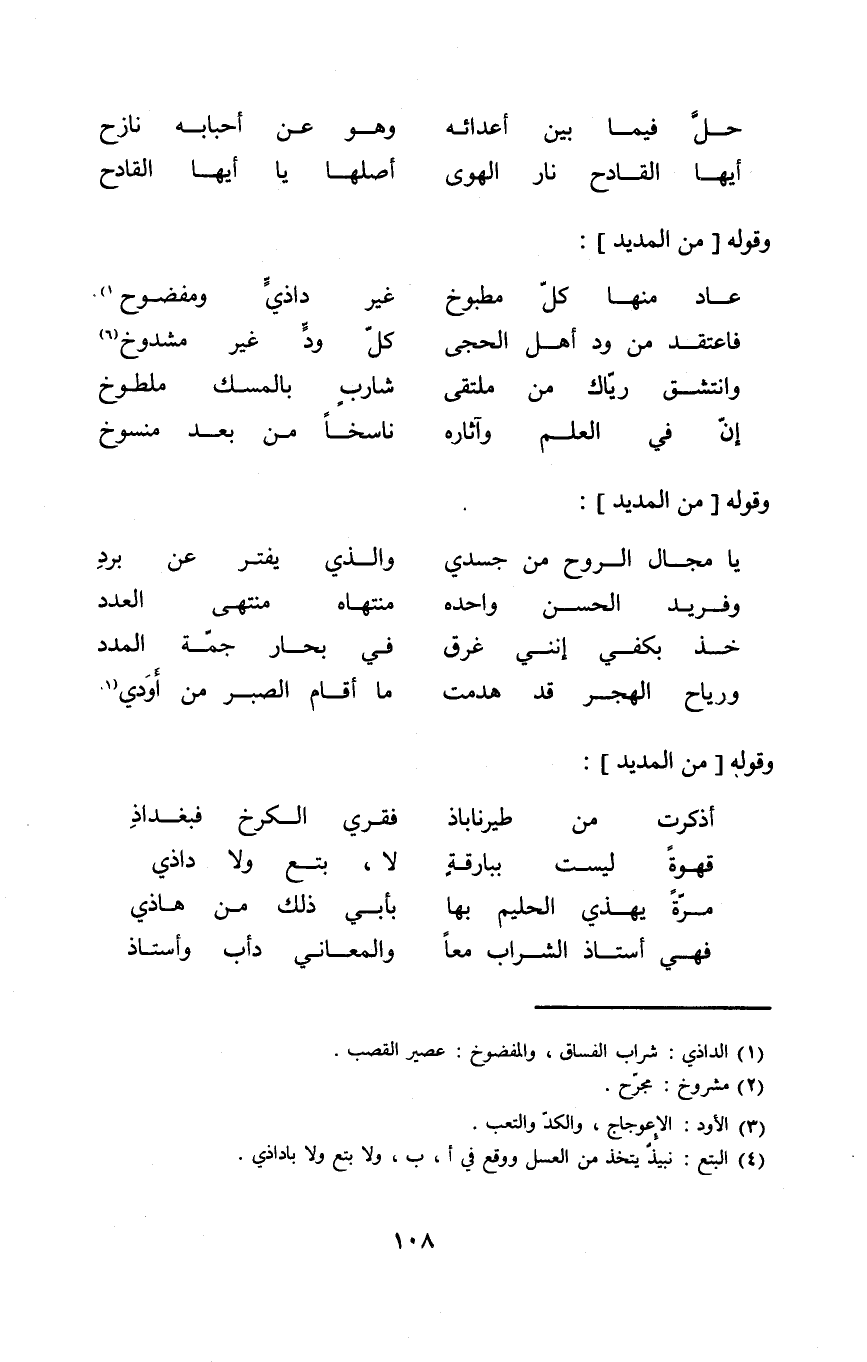 حـلَّ فيمـا بين أعدائـه وهـو عـن أحبابـه نازح
أيهـا القـادح نار الهوى أصلهـا يا أيهـا القادح
وقوله [ من المديد ] :
عـاد منهـا كلّ مطبوخ غير داذيٍّ ومفضـوح (١)
فاعتقـد من ود أهـل الحجى كلّ ودٍّ غير مشدوخ(٦)
وانتشـق ريّاك من ملتقى شاربٍ بالمسـك ملطـوخ
إنّ في العلـم وآثاره ناسخـاً مـن بعـد منسوخ
وقوله [ من المديد ] :
يا مجـال الـروح من جسدي والـذي يفتـر عن بردِ
وفـريـد الحسـن واحده منتهـاه منتهـى العدد
خـذ بكفـي إننـي غرق فـي بحـار جمّـة المدد
ورياح الهجـر قد هدمت ما أقـام الصبـر من أَوَدي(١)
وقوله [ من المديد ] :
أذكرت من طيرناباذ فقـري الـكرخ فبغـداذِ
قهـوةً ليسـت ببارقـةٍ لا ، بتـع ولا داذي
مـرّةً يهـذي الحليم بها بأبـي ذلك مـن هـاذي
فهـي أستـاذ الشـراب معاً والمعـانـي دأب وأستـاذ
(١) الداذي : شراب الفساق ، والمفضوخ : عصير القصب .
(٢) مشروخ : مجرّح .
(٣) الأود : الإعوجاج ، والكدّ والتعب .
(٤) البتع : نبيذٌ يتخذ من العسل ووقع في أ ، ب ، ولا بتع ولا باداذي .
١٠٨